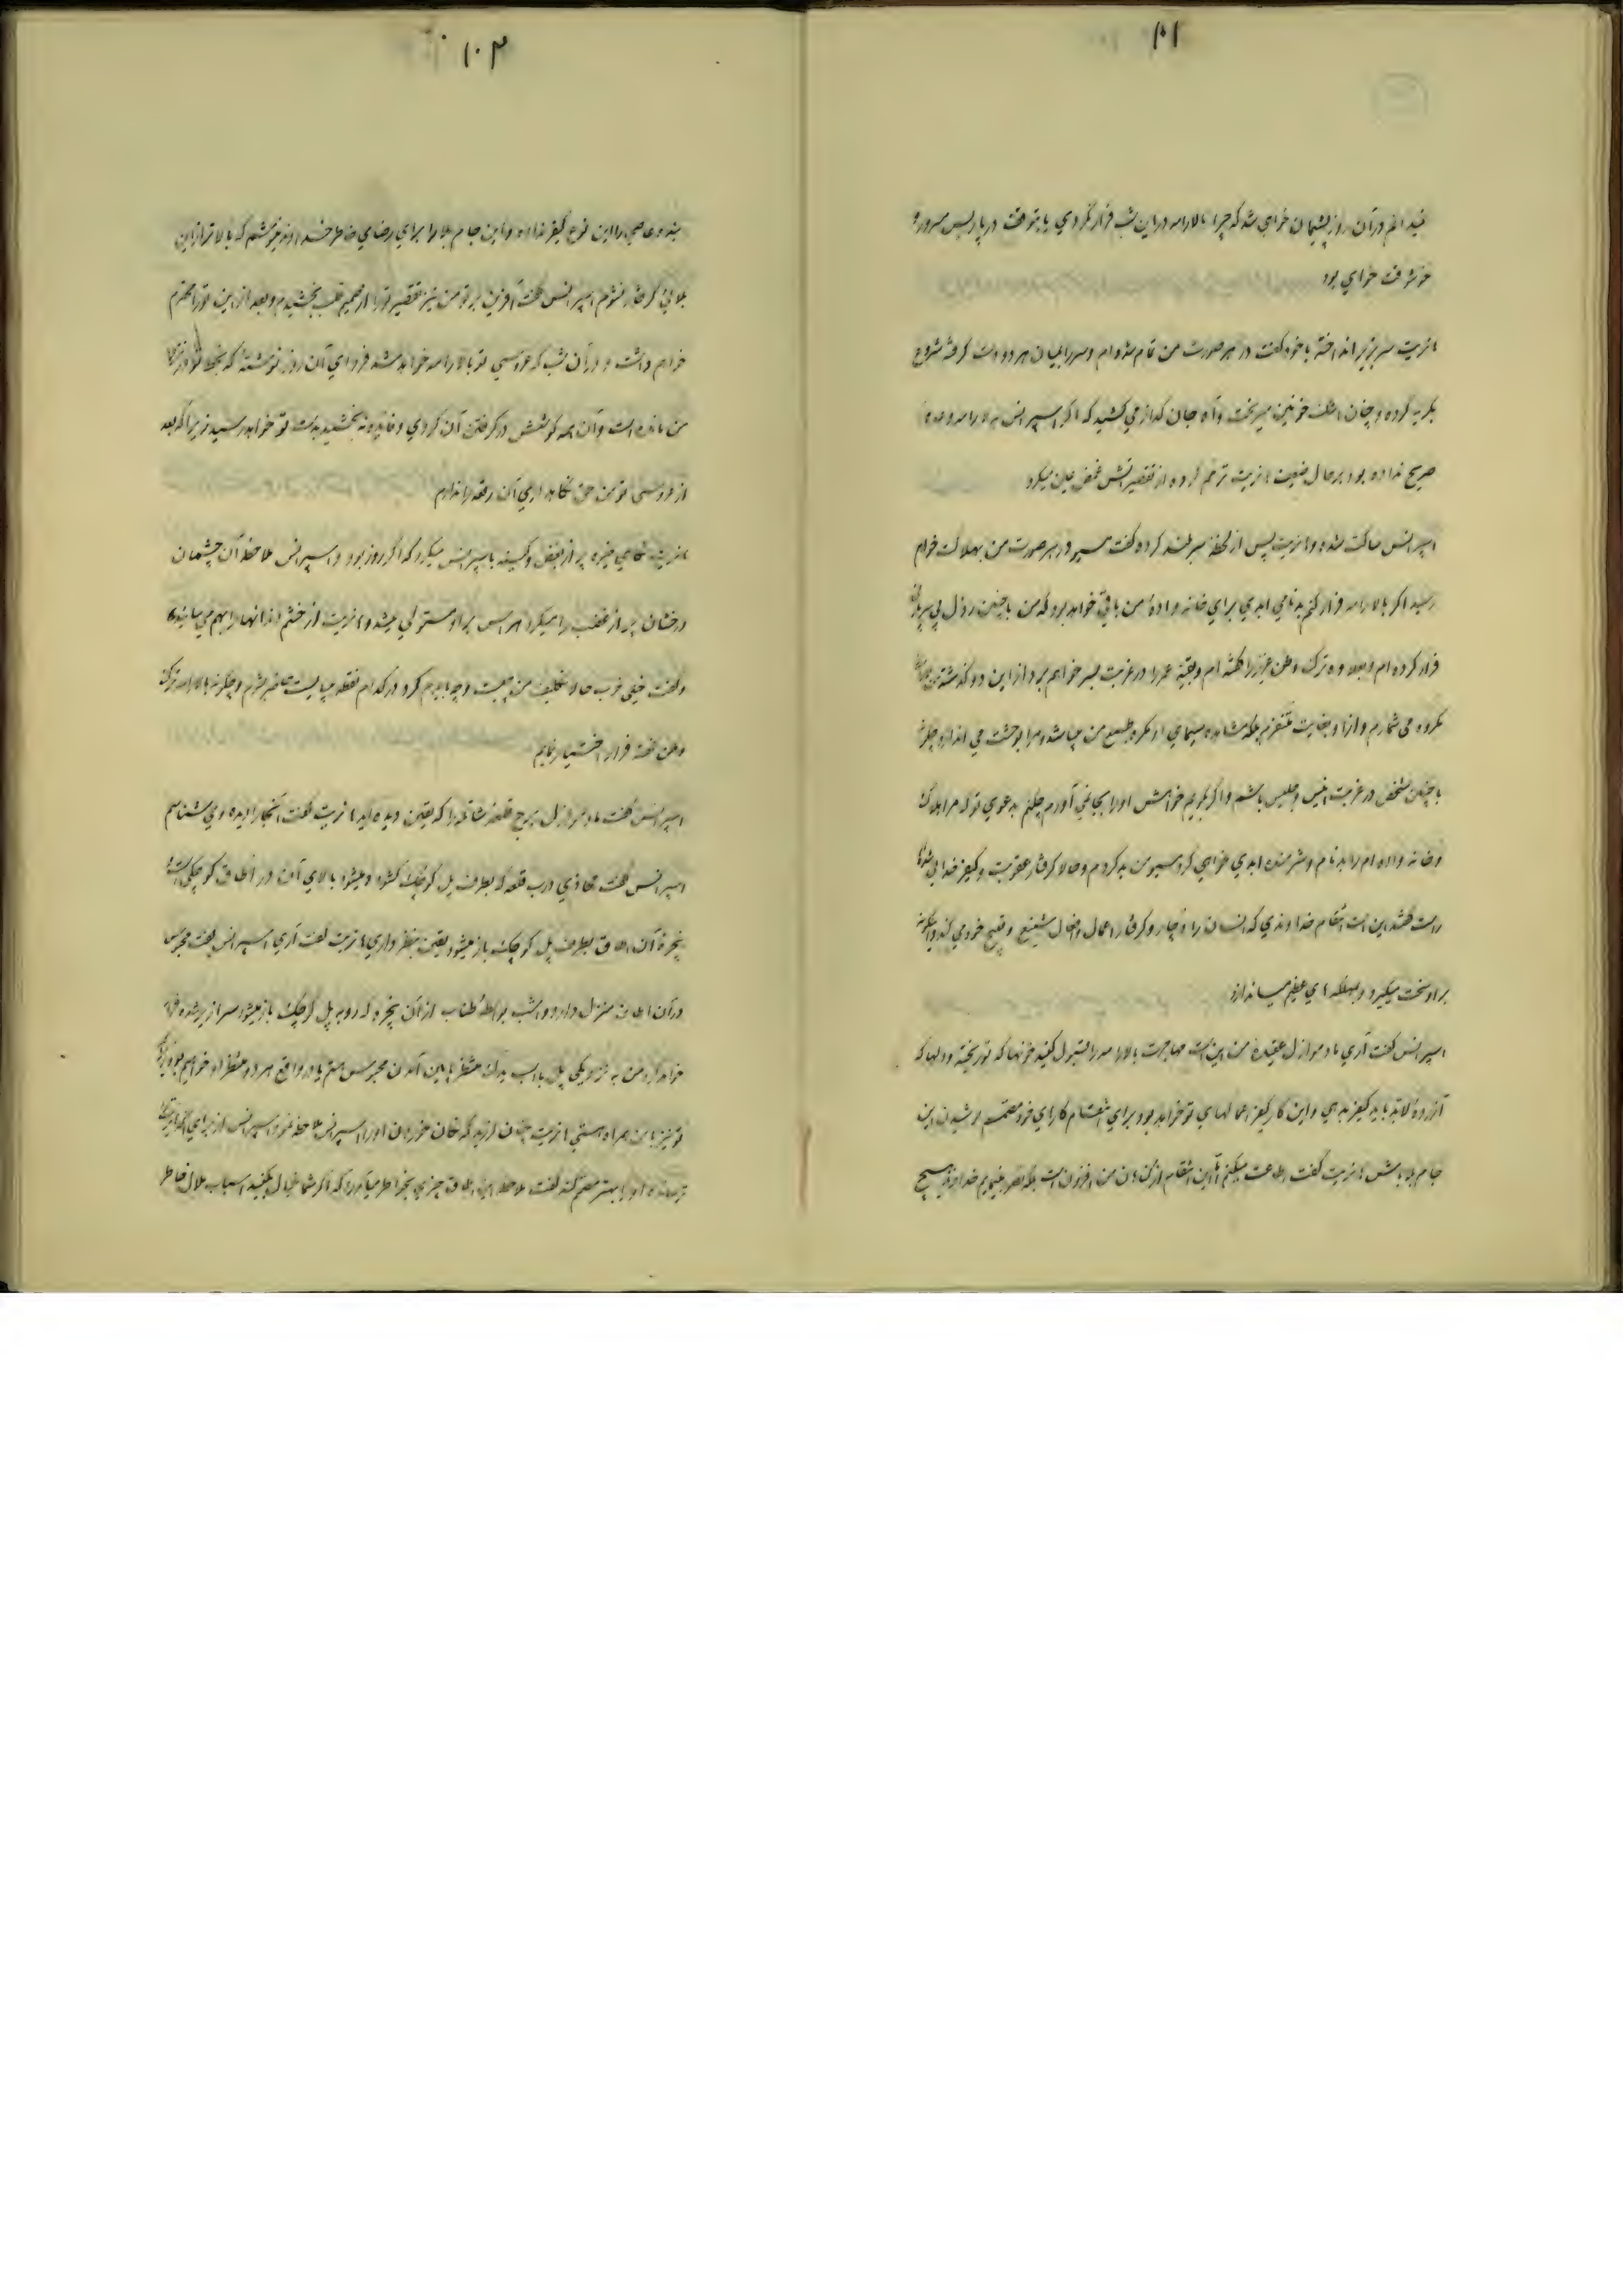 ۱۰۱
در آن روز پشیمان خواهی شد که چرا با لارامه در این شب فرار نکردی
خواهی بود
مانزیت سر بزیر انداخته با خود گفت در هر صورت من تمام شده ام و سر را میان هر دو دست گرفته شروع
بگریه کرده و چنان اشک خونین میریخت و آه جان گداز می کشید که اگر اسپرانس به لارامه وعده
صریح نداده بود بر حال ضعیف مانزیت ترحم کرده از تقصیراتش غمض عین میکرد
اسپرانس ساکت شده و مانزیت پس از لحظه سر بلند کرده گفت مسیو در هر صورت من بهلاکت خواهم
رسید اگر با لارامه فرار کنم بدنامی ابدی برای خانواده من باقی خواهد بود که من با چنین رذل بی
فرار کرده ام و بعلاوه ترک وطن عزیز را گفته ام و بقیه عمر را در غربت بسر خواهم برد از این دو گذشته
مکروه می شمارم و از او بغایت متنفرم بلکه مشاهده سیمای او مکروه طبع من میباشد و مرا بوحشت می اندازد چگونه
با چنین شخص در غربت انیس و جلیس باشم و اگر بگویم خواهش او را بجا نمی آورم چکنم بدعوی تو که مرا هلاک
و خانواده ام را بدنام و شرمنده ابدی خواهی کرد مسیو من بد کردم و حالا گرفتار عقوبت و کیفر خدائی
راست گفتند این است انتقام خداوندی که انسان را دچار و گرفتار اعمال و افعال شنیع و قبیح خود می کند
بر او سخت میگیرد و بمهلکه ای عظیم میاندازد
اسپرانس گفت آری مادموازل عقیده من این است مهاجرت با لارامه را قبول کنید خونها که تو ریخته و دلها که
آزرده لابد باید کیفر بدهی و این کار کیفر اعمالهای تو خواهد بود برای انتقام کارهای خود مصمم نوشیدن این
جام بلا باش مانزیت گفت اطاعت میکنم اما این انتقام از گناهان من افزون است بلکه تصور میکنم خداوند هیچ
۱۰۲
بنده عاصی را این نوع کیفر نداده و این جام بلا را برای رضای خاطر خداوند مینوشم که بالاتر از این
بلائی گرفتار نشوم اسپرانس گفت آفرین بر تو من نیز تقصیر تو را از صمیم قلب بخشیدم و بعد از این تو را محترم
خواهم داشت و در آن شب که عروسی تو با لارامه خواهد شد فردای آن روز نوشته که بخط تو در نزد
من مانده است و آن همه کوشش در گرفتن آن کردی و فایده نبخشید بدست تو خواهد رسید زیرا که بعد
از عروسی تو من حق نگاهداری آن رقعه را ندارم
مانزیت نگاهی خیره پر از بغض و کینه باسپرانس میکرد که اگر روز بود و اسپرانس ملاحظه آن چشمان
درخشان پر از غضب را میکرد هراس بر او مستولی میشد و مانزیت از خشم دندانها را بهم می سائید
و گفت خیلی خوب حالا تکلیف من چیست و چه باید کرد و در کدام نقطه میبایست حاضر شوم و چگونه با لارامه ترک
وطن گفته فرار اختیار نمایم
اسپرانس گفت مادموازل برج قلعه شاتله را که یقین دیده اید مانزیت گفت آنجا را دیده و می شناسم
اسپرانس گفت محاذی درب قلعه که بطرف پل کوچک گشوده میشود بالای آن در اطاق کوچکی است
پنجره آن اطاق بطرف پل کوچک باز میشود یقین بنظر داری مانزیت گفت آری اسپرانس گفت محبوس
در آن اطاق منزل دارد و امشب بواسطه طناب از آن پنجره که رو به پل کوچک باز میشود سرازیر شده فرار
خواهد کرد من به نزدیکی پل با اسب یدک منتظر پایین آمدن محبوس هستم یا در واقع هر دو منتظر او خواهیم بود
تو نیز با من همراه هستی مانزیت چنان لرزید که تکان خوردن او را اسپرانس ملاحظه نمود اسپرانس از برای آنکه
ترسانده او را بهتر مصمم کند گفت ملاحظه این اطاق چیزی بخاطر میآورد که اگر شما خیال بکنید اسباب ملال خاطر